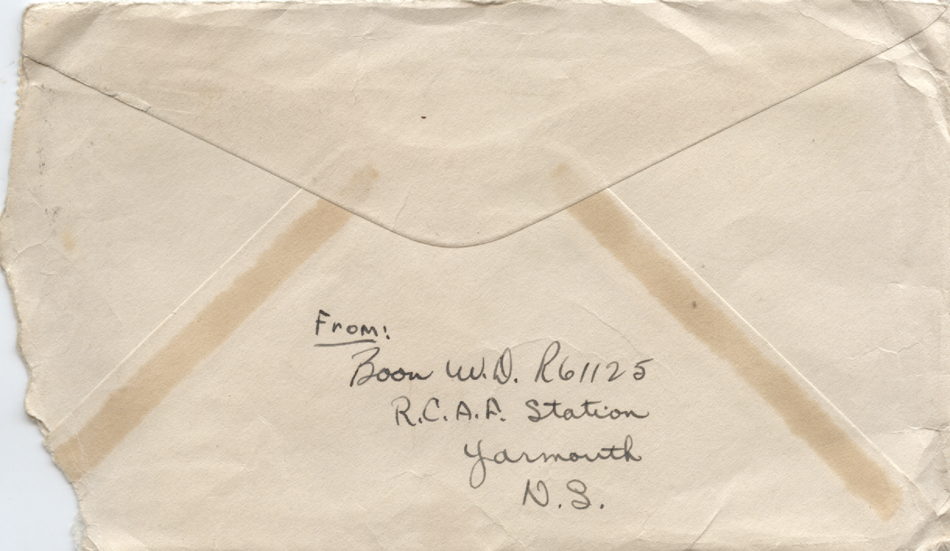 From:
Boon W.D. R61125
R.C.A.F. Station
Yarmouth
N.S.